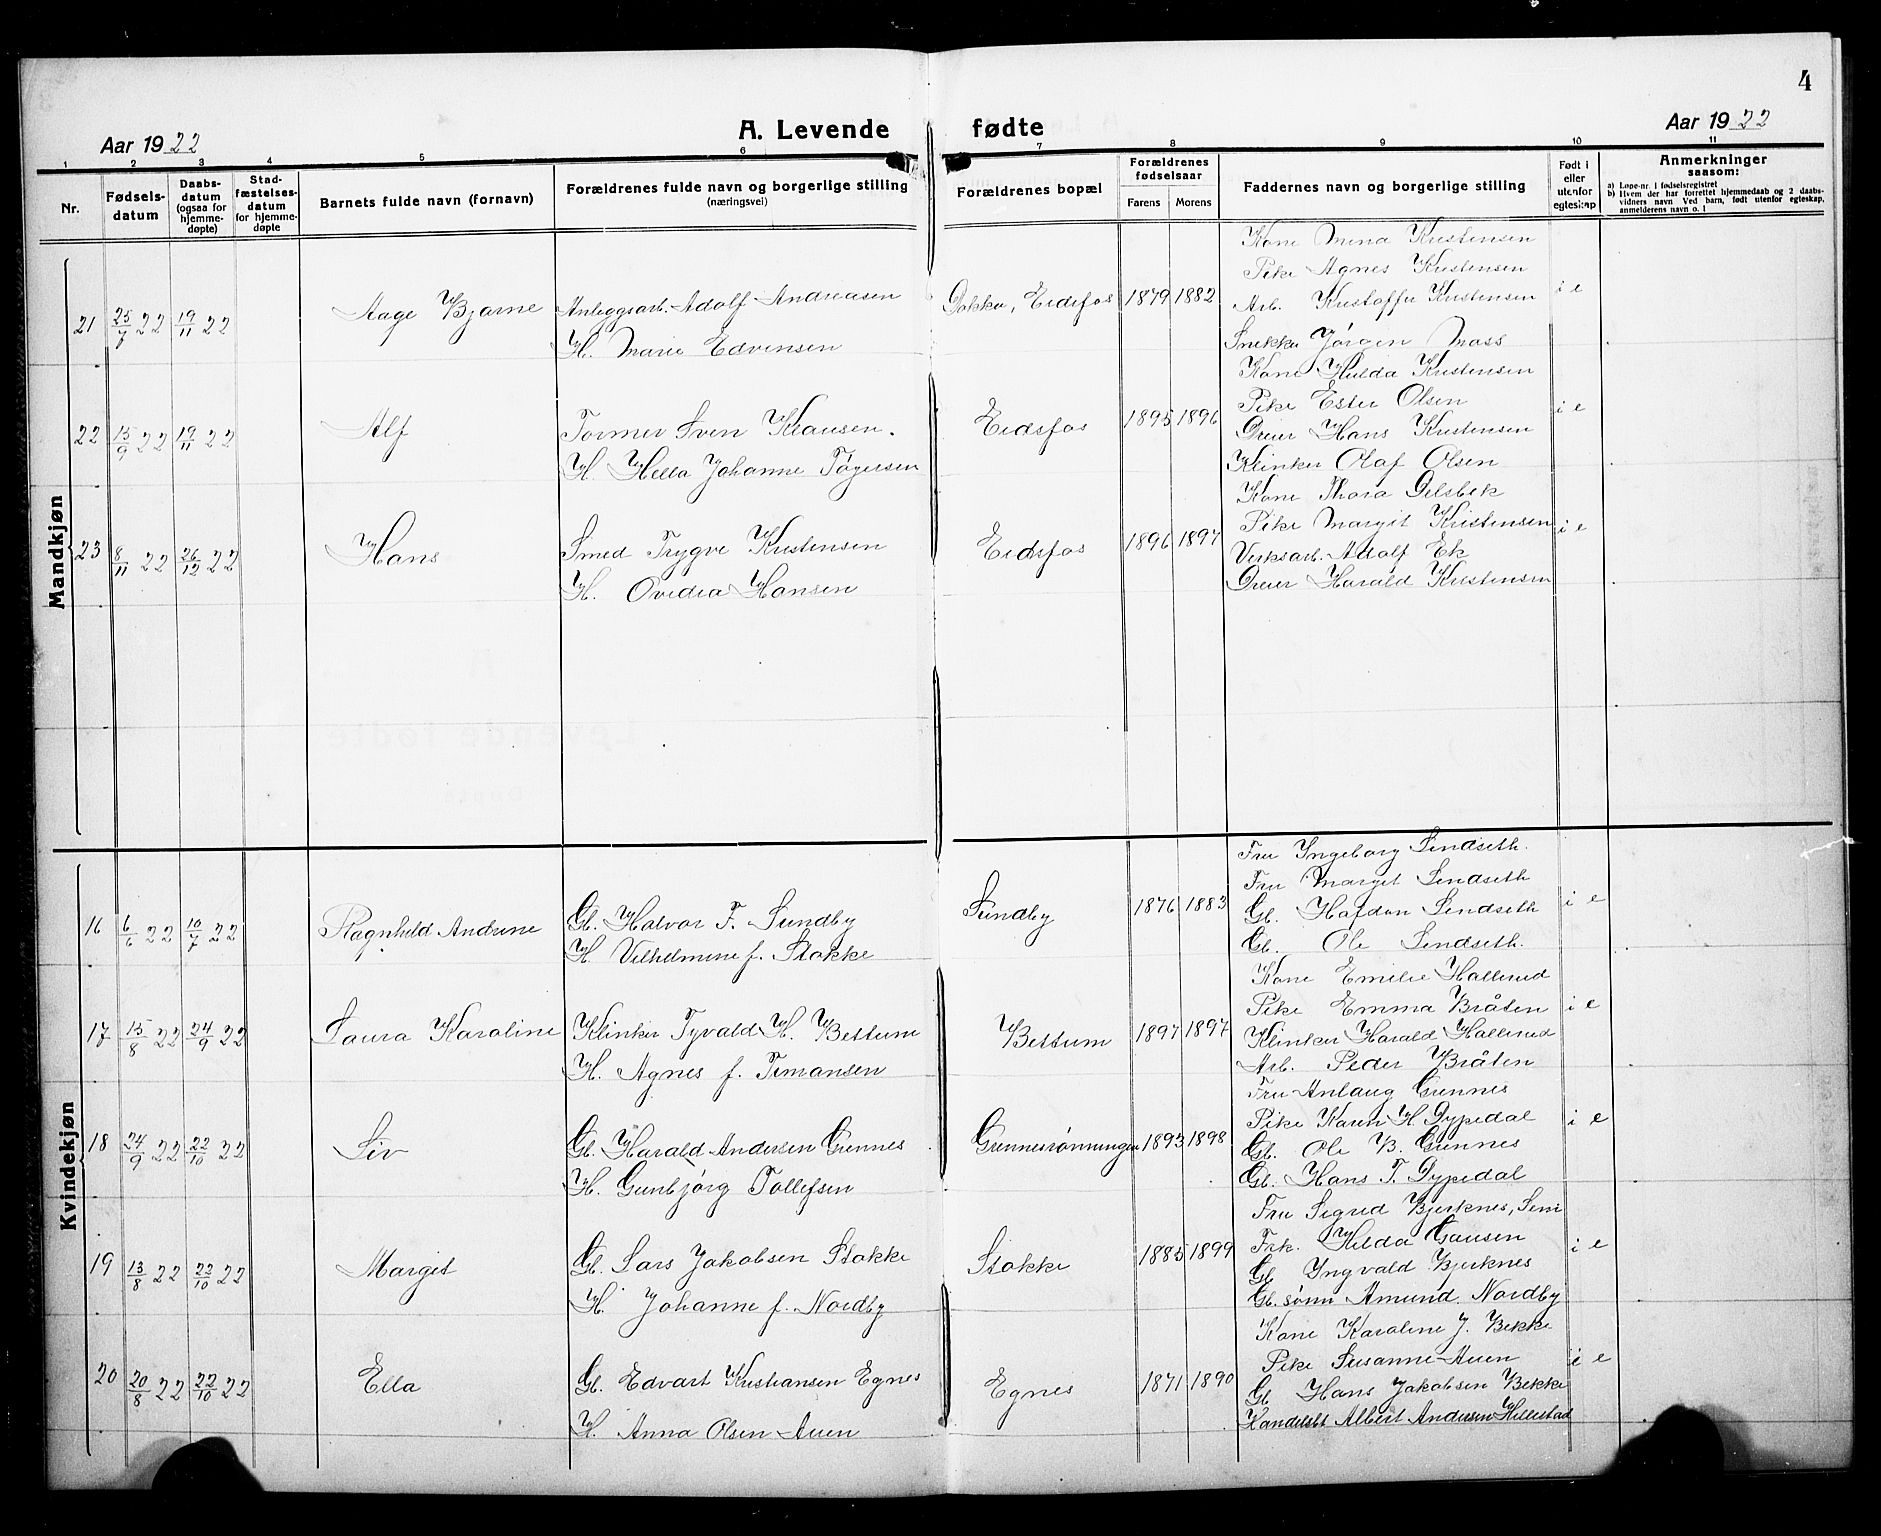 4
Aar 1922
A. Levende fødte
Aar 1922
1 2 3 4 5 6 7 8 9 10 11
Nr.
Fødsels-
datum
Daabs-
datum
(ogsaa for
hjemme-
døpte)
Stad-
fæstelses-
datum
for hjemme-
døpte
Barnets fulde navn (fornavn)
Forældrenes fulde navn og borgerlige stilling
(næringsvei)
Forældrenes bopæl
Forældrenes
fødselsaar
Farens Morens
Faddernes navn og borgerlige stilling
Født i
eller
utenfor
egteskap
Anmerkninger
saasom:
a) Løpe-nr. i fødselsregistret
b) Hvem der har forrettet hjemmedaab og 2 daabs-
vidners navn Ved barn, født utenfor egteskap,
anmelderens navn o. l
Mandkjøn
21 25/7 22 19/11 22 Aage Bjarne
Anleggsarb. Adolf Andreasen
H. Marie Edvensen
Dokka, Eidsfos 1879 1882
Kone Mina Kristensen
Pike Agnes Kristensen
Arb. Kristoffer Kristensen
Snekker Jørgen Moss
i e
22 15/9 22 19/11 22 Alf
Former Sven Klausen.
H. Hella Johanne Tøgersen
Eidsfos 1895 1896
Kone Hulda Kristensen
Pike Ester Olsen
Dreier Hans Kristensen
Klinker Olaf Olsen
i e
23 8/11 22 26/12 22 Hans
Smed Trygve Kristensen
H. Ovidia Hansen
Eidsfos 1896 1897
Kone Thora Delsbek
Pike Margit Kristensen
Verksarb. Adolf Ek
Dreier Harald Kristensen
i e
Kvindekjøn
16 6/6 22 10/7 22 Ragnhild Andrine
Gb. Halvor F. Sundby
H. Vilhelmine f. Stokke
Sundby 1876 1883
Fru Ingeborg Sendseth.
Fru Margit Sendseth
Gb. Hafdan Sendseth
Gb. Ole Sendseth.
i e
17 15/8 22 24/9 22 Laura Karoline
Klinker Tyvald H. Bettum
H. Agnes f. Timansen
Bettum 1897 1897
Kone Emilie Hallerud
Pike Emma Bråten
Klinker Harald Hallerud
Arb. Peder Bråten
i e
18 24/9 22 22/10 22 Siv
Gb. Harald Andersen Grennes
H. Gunbjørg Tollefsen
Grennesrønningen 1893 1898
Fru Anlaug Grennes
Pike Karen H. Dypedal
Gb. Ole B. Grennes
Gb. Hans T. Dypedal
i e
19 13/8 22 22/10 22 Margit
Gb. Lars Jakobsen Stokke
H. Johanne f. Nordby
Stokke 1885 1899
Fru Sigrid Bjerknes, Sem
Frk. Hilda Gausen
Gb Yngvald Bjerknes
Gb. sønn Amund Nordby
i e
20 20/8 22 22/10 22 Ella
Gb. Edvart Kristiansen Egnes
H. Anna Olsen Auen
Egnes 1871 1890
Kone Karoline J. Bekke
Pike Susanne Auen
Gb Hans Jakobsen Bekke
Handelsbt Albert Andersen Hillestad
i e